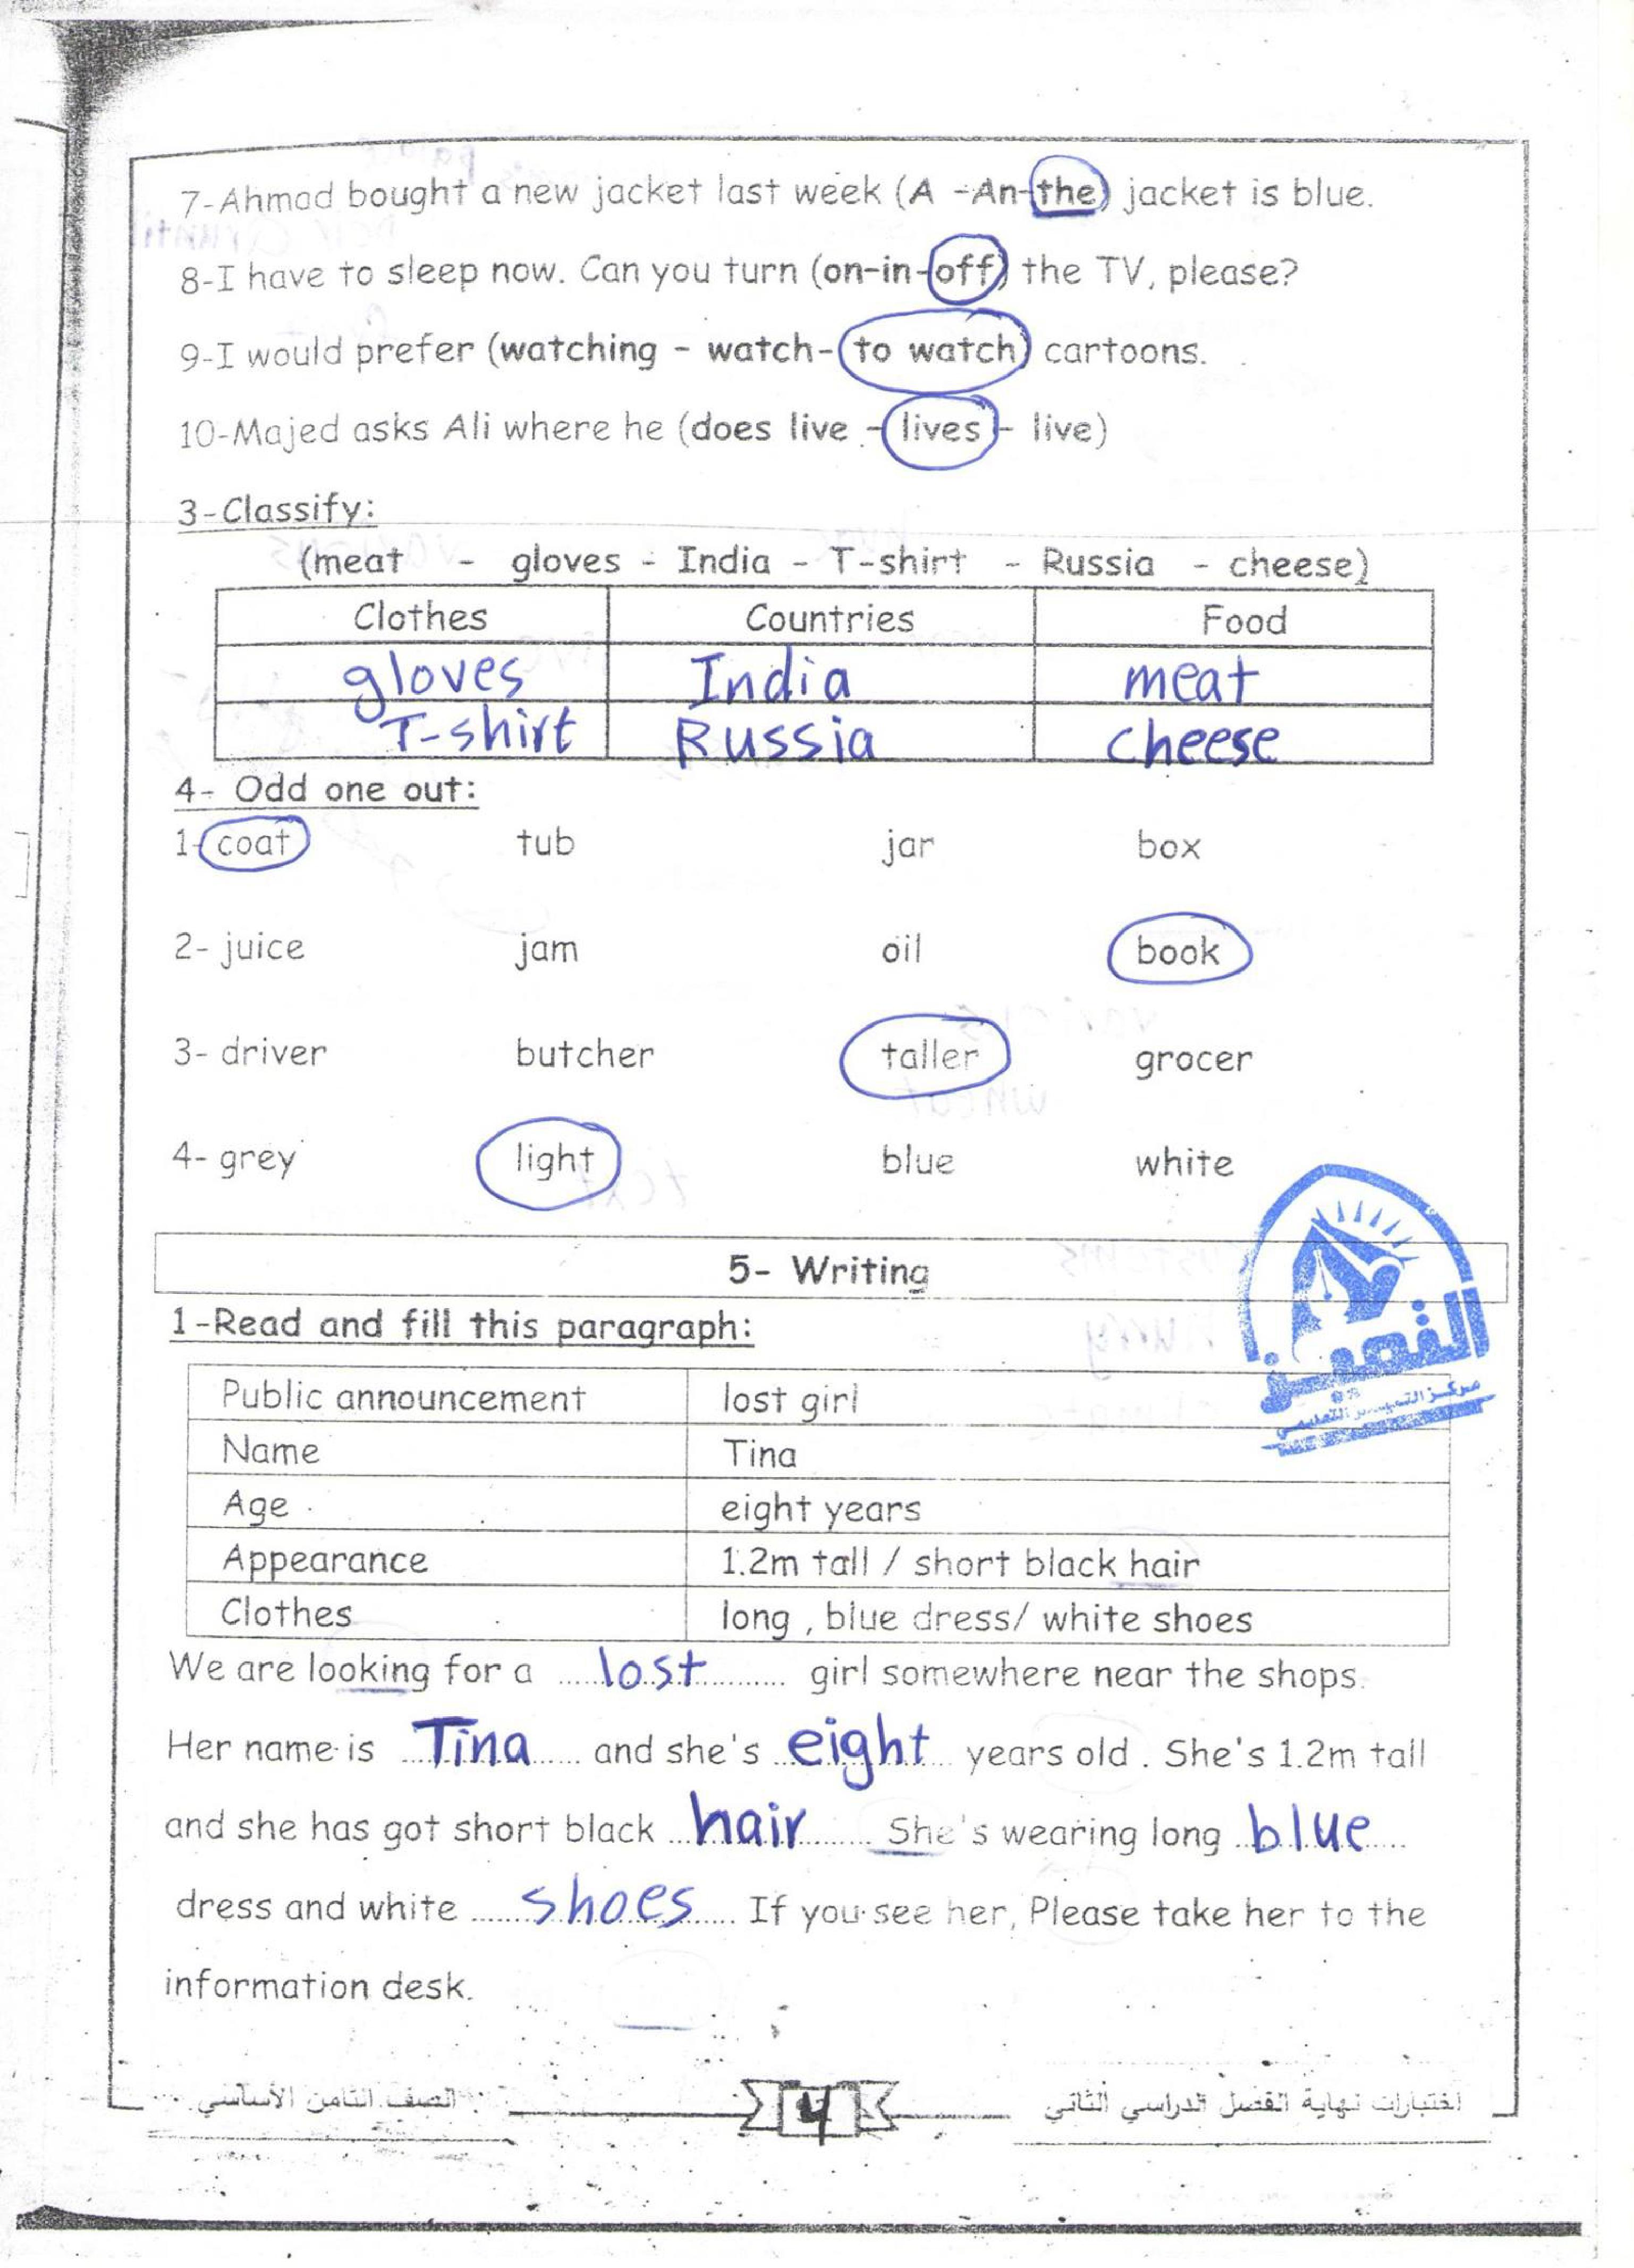 7-Ahmad bought a new jacket last week (A -An-the) jacket is blue.
8-I have to sleep now. Can you turn (on-in-off) the TV, please?
9-I would prefer (watching - watch- to watch) cartoons.
10-Majed asks Ali where he (does live - lives - live)
3-Classify:
(meat - gloves - India - T-shirt - Russia - cheese)
Clothes Countries Food
gloves India meat
T-shirt Russia cheese
4- Odd one out:
1- coat tub jar box
2- juice jam oil book
3- driver butcher taller grocer
4- grey light blue white
5- Writing
1-Read and fill this paragraph:
التميز
مركز التميز التعليمي
Public announcement lost girl
Name Tina
Age eight years
Appearance 1.2m tall / short black hair
Clothes long , blue dress/ white shoes
We are looking for a lost girl somewhere near the shops.
Her name is Tina and she's eight years old . She's 1.2m tall
and she has got short black hair She's wearing long blue
dress and white shoes If you see her, Please take her to the
information desk.
اختبارات نهاية الفصل الدراسي الثاني 4 الصف الثامن الأساسي